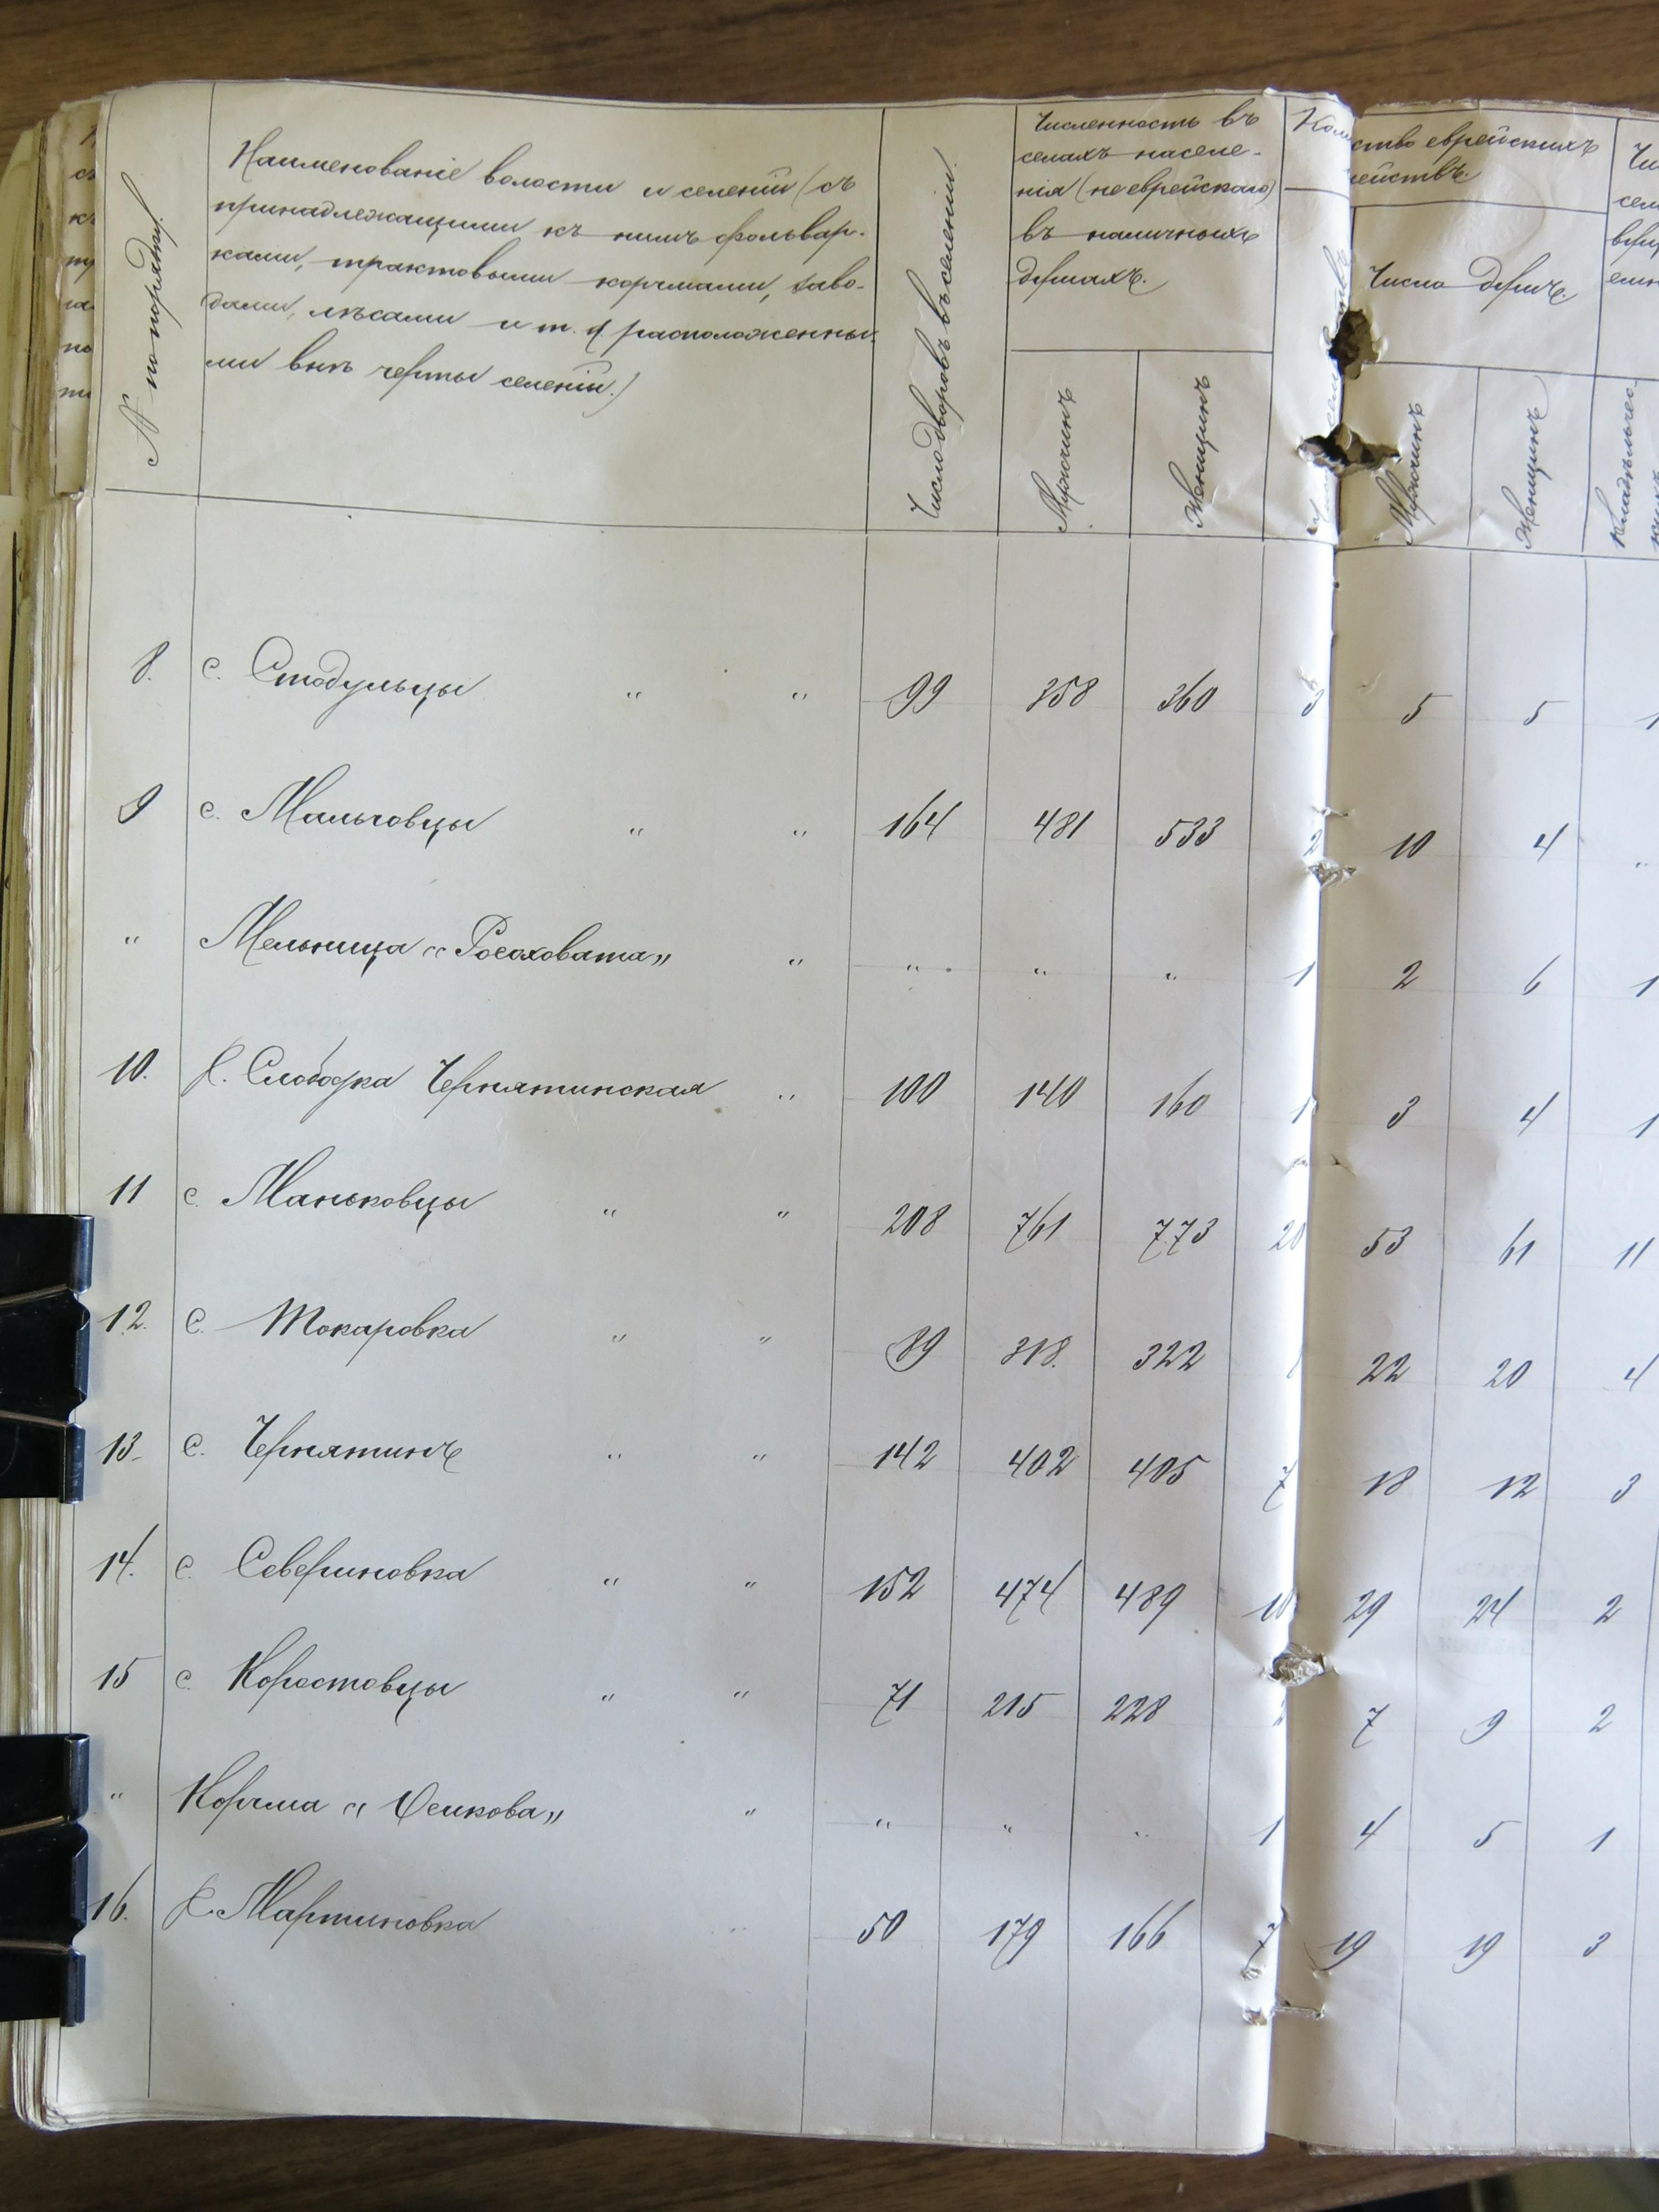 № по порядку.
Наименованіе волости и селеній (съ
принадлежащими къ нимъ фольвар-
ками, трактовыми корчмами, заво-
дами, лѣсами и т. д. расположенны-
ми внѣ черты селенія.)
Число дворовъ въ селеніи.
Численность въ
селахъ населе-
нія (не еврейскаго)
въ наличныхъ
душахъ.
Мужчинъ
Женщинъ
ство еврейскихъ
Число душъ.
Мужчинъ
Женщинъ
8. с. Стодульцы " " 99 358 360 3 5 5 1
9 с. Мальчовцы " " 164 481 533 2 10 4 "
" Мельница „Росоховата" " " " " 1 2 6 1
10. д. Слободка Чернятинская " 100 140 160 1 3 4 1
11 с. Маньковцы " " 208 761 773 20 53 61 11
12. с. Токаровка " " 89 318. 322 22 20 4
13. с. Чернятинъ " " 142 402 405 7 18 12 3
14. с. Севериновка " " 152 474 489 10 29 24 2
15 с. Коростовцы " " 71 215 228 2 7 9 2
" Корчма „Осикова" " " " " 1 4 5 1
16. д. Мартиновка " 50 179 166 7 19 19 3